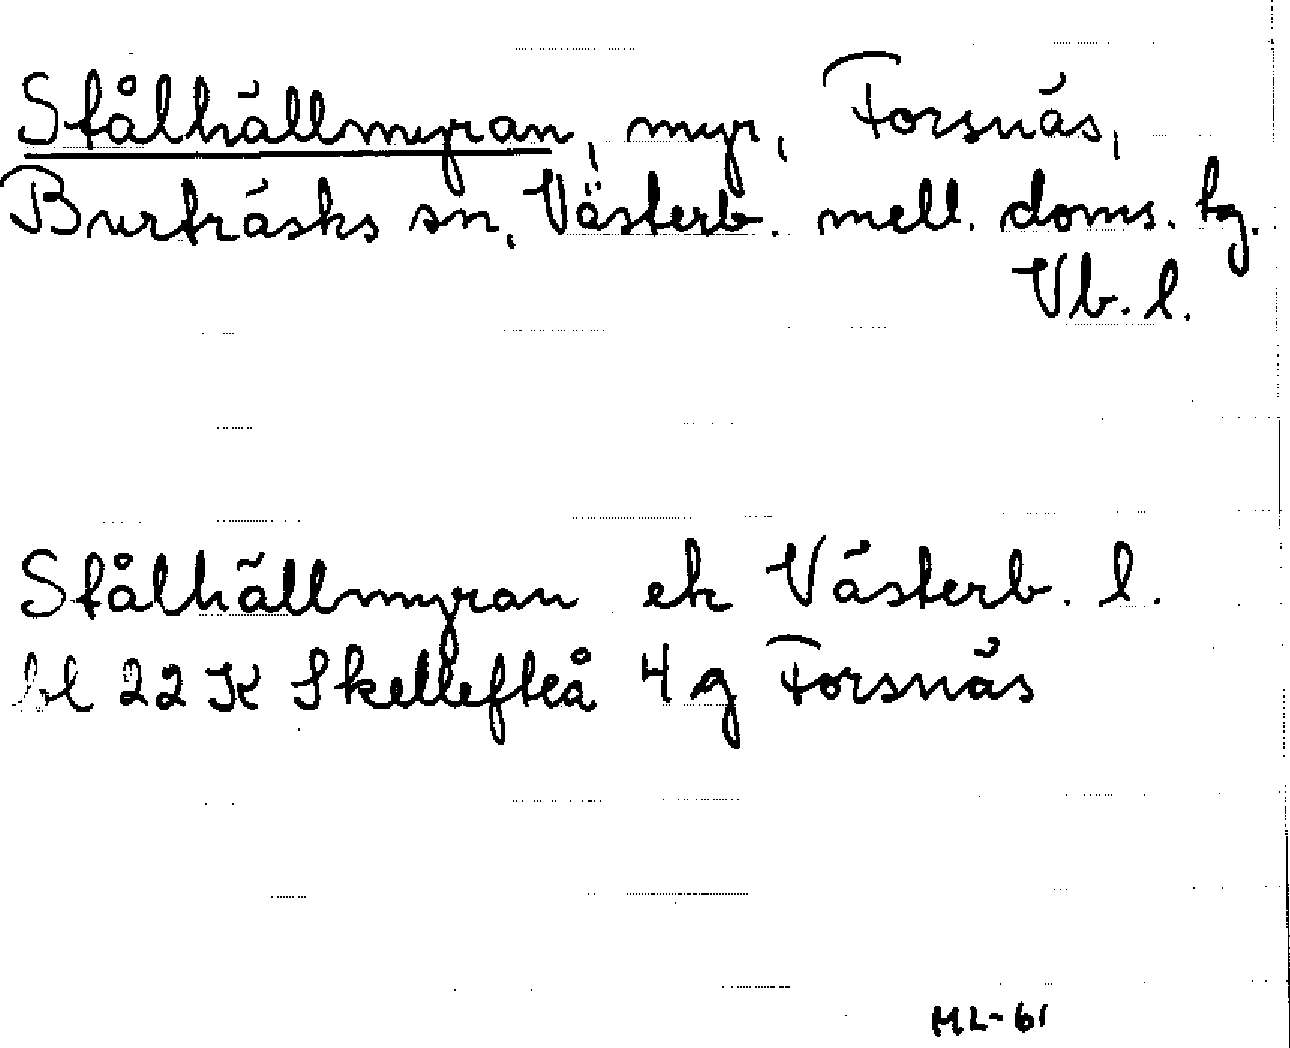 Stålhällmyran, myr, Forsnäs,
Burträsks sn, Västerb. mell. doms. tg.
Vb. l.
Stålhällmyran ek Västerb. l.
bl 22 K Skellefteå 4 g Forsnäs
ML-61